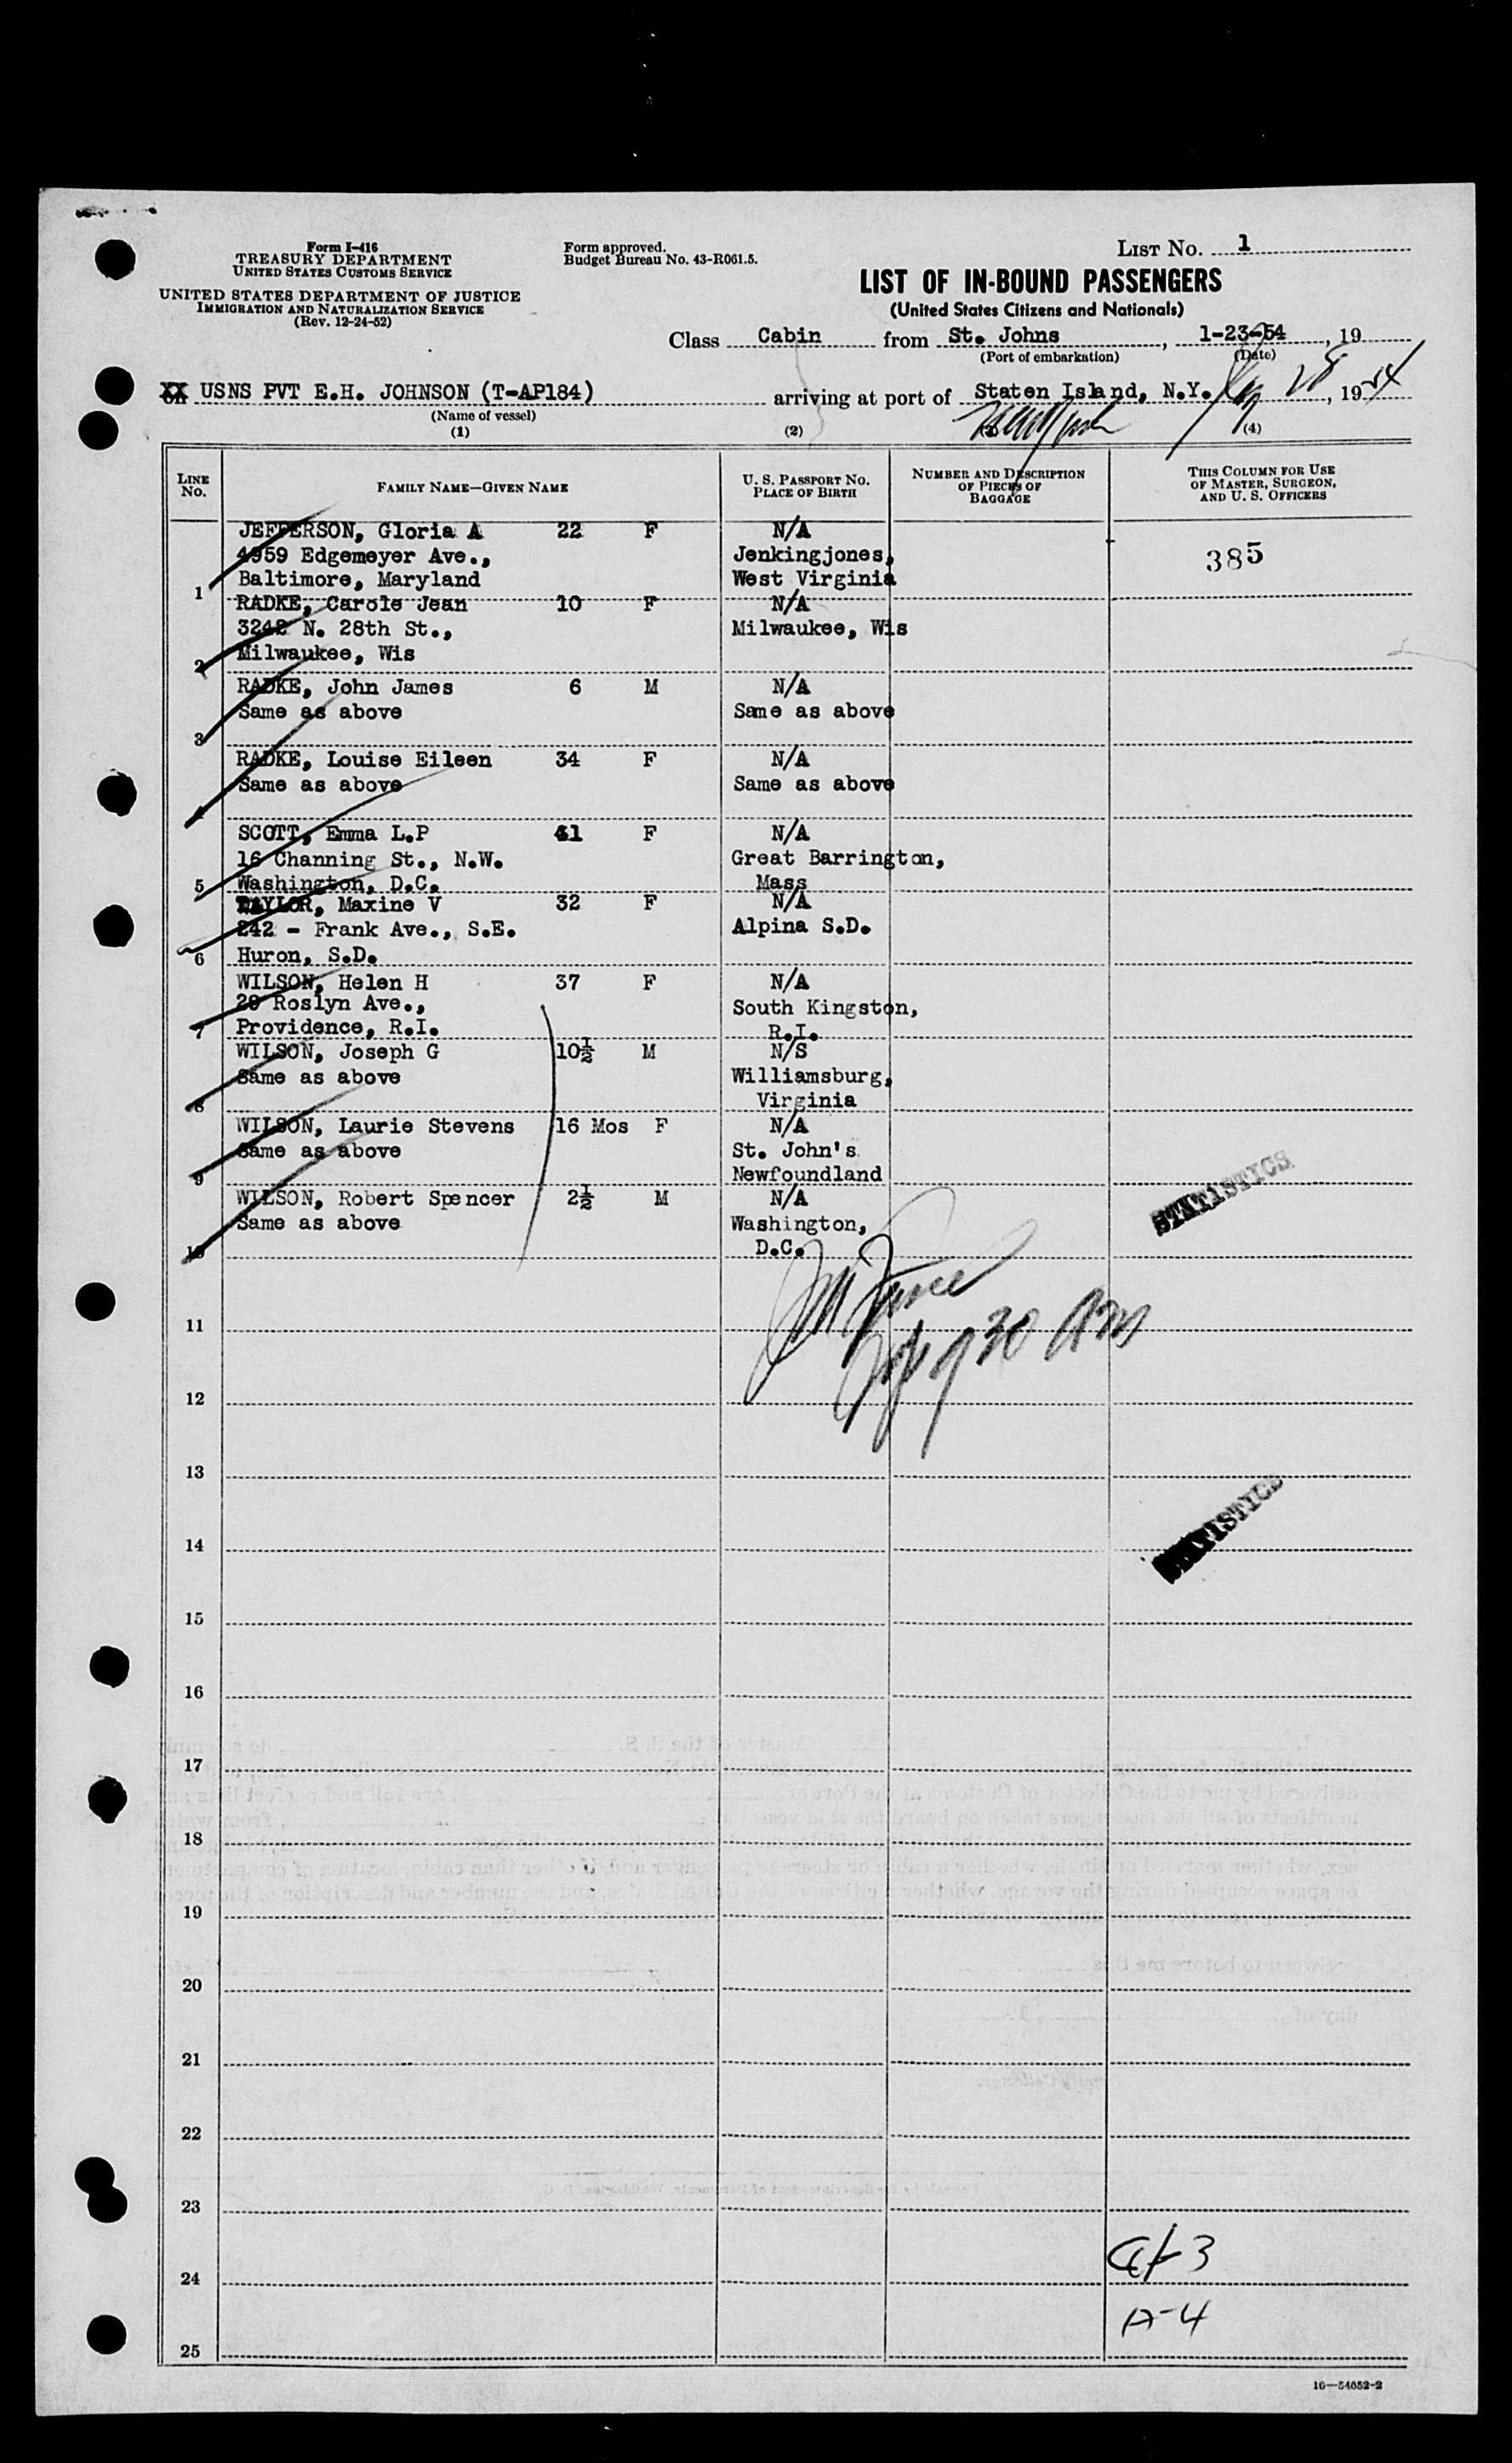 Form I-416
TREASURY DEPARTMENT
UNITED STATES CUSTOMS SERVICE
UNITED STATES DEPARTMENT OF JUSTICE
IMMIGRATION AND NATURALIZATION SERVICE
(Rev. 12-24-52)
Form approved.
Budget Bureau No. 43-R061.5.
LIST NO. 1
LIST OF IN-BOUND PASSENGERS
(United States Citizens and Nationals)
Class Cabin from St. Johns, 1-23-54, 19
(Port of embarkation) (Date)
XX USNS PVT E.H. JOHNSON (T-AP184) arriving at port of Staten Island, N.Y. 28, 1954
(Name of vessel)
(1) (2) (3) (4)
LINE NO. FAMILY NAME—GIVEN NAME U. S. PASSPORT NO. PLACE OF BIRTH NUMBER AND DESCRIPTION OF PIECES OF BAGGAGE THIS COLUMN FOR USE OF MASTER, SURGEON, AND U. S. OFFICERS
JEFFERSON, Gloria A 22 F N/A
4959 Edgemeyer Ave., Jenkingjones, 385
1 Baltimore, Maryland West Virginia
RADKE, Carole Jean 10 F N/A
3242 N. 28th St., Milwaukee, Wis
2 Milwaukee, Wis
RADKE, John James 6 M N/A
Same as above Same as above
3
RADKE, Louise Eileen 34 F N/A
Same as above Same as above
4
SCOTT, Emma L.P 41 F N/A
16 Channing St., N.W. Great Barrington,
5 Washington, D.C. Mass
TAYLOR, Maxine V 32 F N/A
242 - Frank Ave., S.E. Alpina S.D.
6 Huron, S.D.
WILSON, Helen H 37 F N/A
29 Roslyn Ave., South Kingston,
7 Providence, R.I. R.I.
WILSON, Joseph G 10½ M N/S
Same as above Williamsburg,
8 Virginia
WILSON, Laurie Stevens 16 Mos F N/A
Same as above St. John's
9 Newfoundland
WILSON, Robert Spencer 2½ M N/A
Same as above Washington,
10 D.C.
STATISTICS
11
930 Am
12
13
14
STATISTICS
15
16
17
18
19
20
21
22
23
24
3
A-4
25
16—54052-2